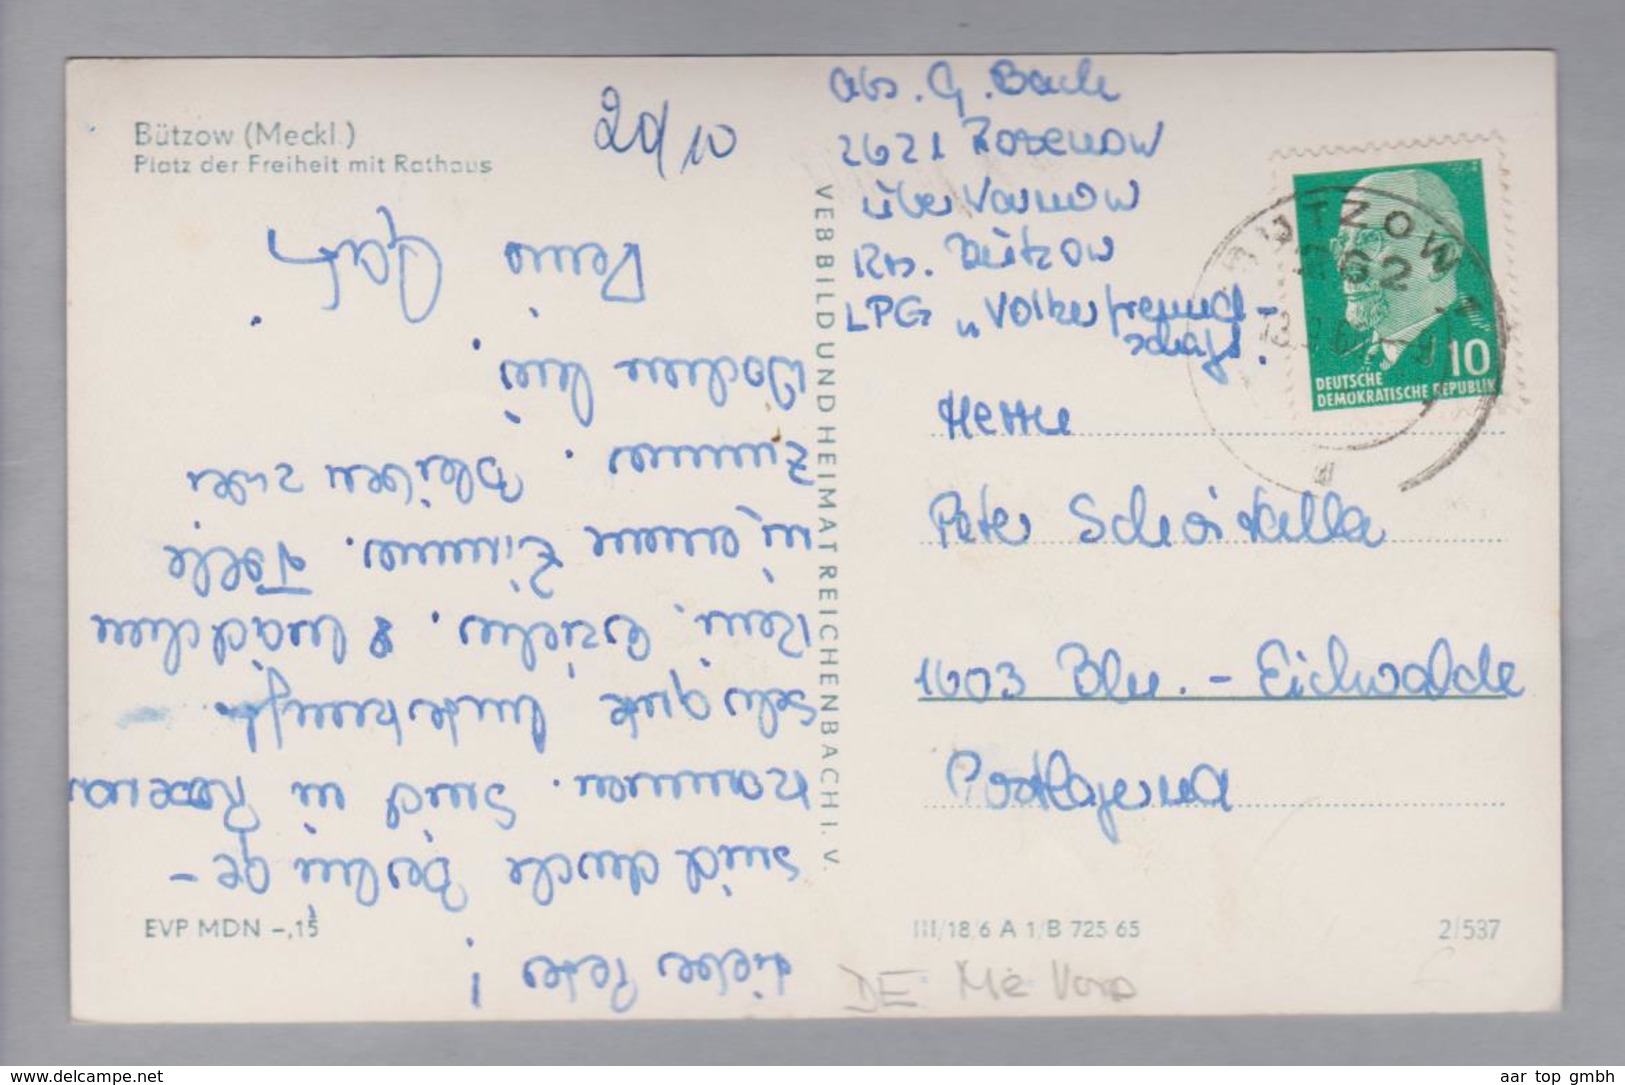 Bützow (Meckl.)
Platz der Freiheit mit Rathaus
20/10
Lieber Peter!
Sind durch Berlin ge-
kommen. Sind in
Sehr gute Unterkunft.
Kein Erzieher. 8 Mädchen
in einem Zimmer. Tolle
Zimmer. Bleiben zwei
Wochen hier.
Deine
EVP MDN -,15
VEB BILD UND HEIMAT REICHENBACH I. V.
Abs. G. Bach
2621
über Warnow
Krs. Bützow
LPG „Völkerfreund-
schaft"
BÜTZOW
262
10
DEUTSCHE
DEMOKRATISCHE REPUBLIK
Herrn
Peter
1603 Bln. - Eichwalde
Postlagernd
III/18/6 A 1/B 725 65
2/537
DE
aar top gmbh
www.delcampe.net